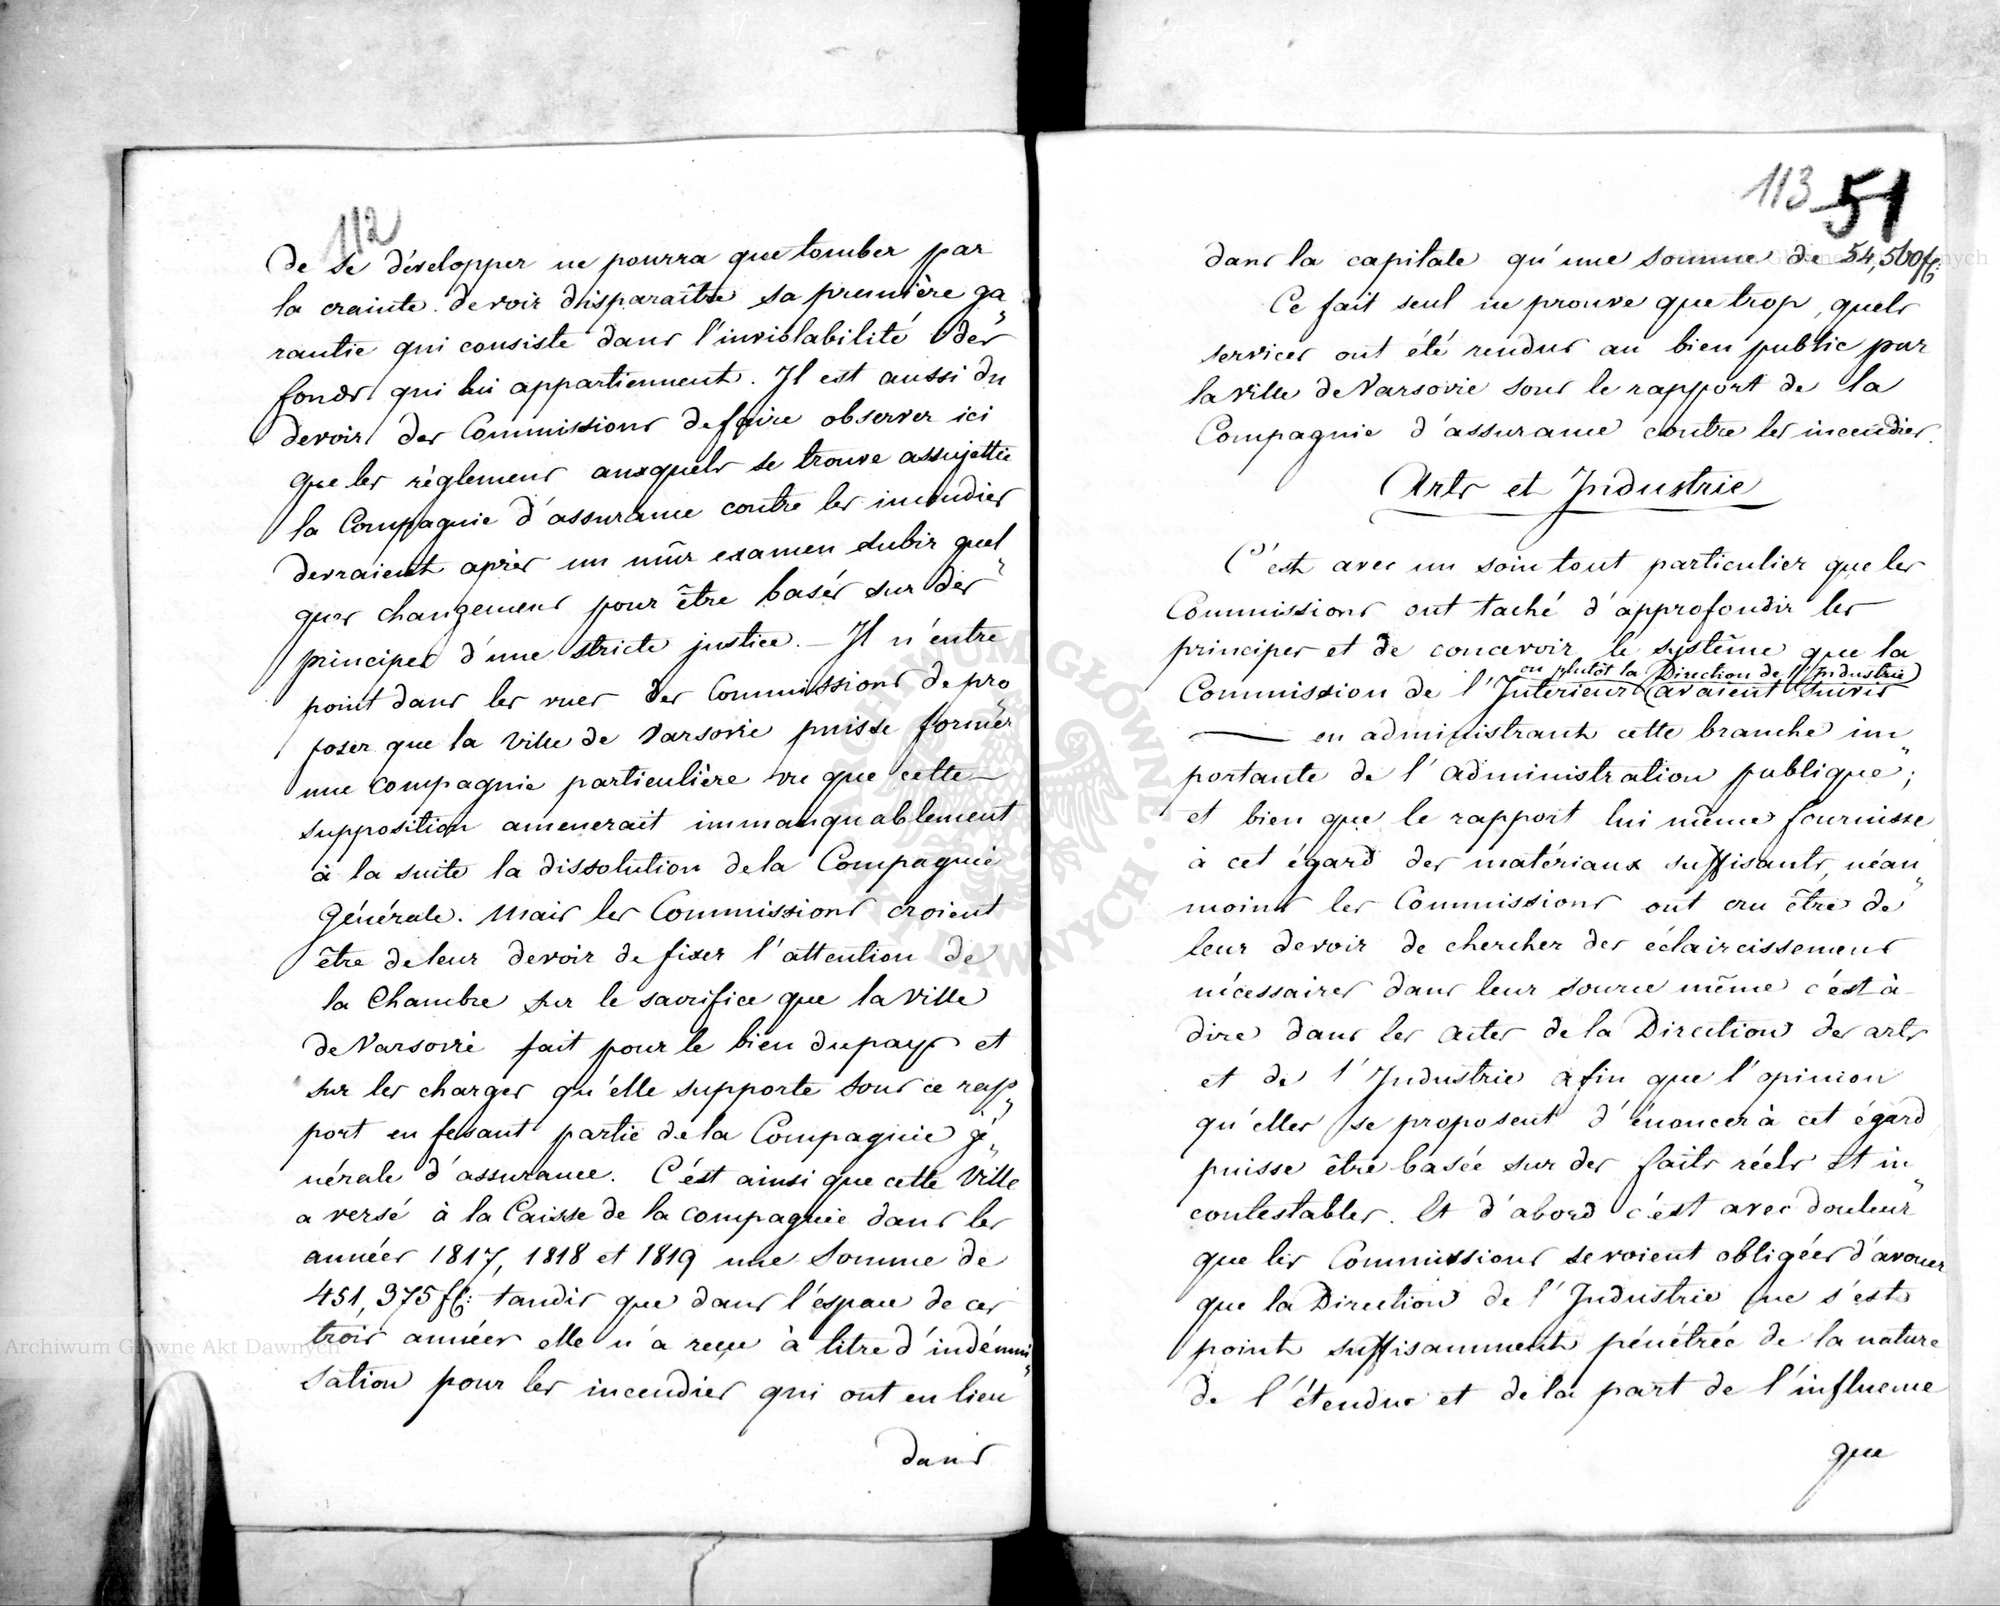 112
de se développer ne pourra que tomber par
la crainte de voir disparaître sa première ga„
rantie qui consiste dans l'inviolabilité des
fonds qui lui appartiennent. Il est aussi du
devoir des Commissions de faire observer ici
que les réglemens auxquels se trouve assujettie
la Compagnie d'assurance contre les incendies
devraient après un mûr examen subir quel„
ques changemens pour être basés sur des
principes d'une stricte justice. — Il n'entre
point dans les vues des Commissions de pro„
poser que la ville de Varsovie puisse former
une compagnie particulière vu que cette —
supposition amenerait immanquablement
à la suite la dissolution de la Compagnie
générale. Mais les Commissions croient
être de leur devoir de fixer l'attention de
la Chambre sur le sacrifice que la ville
de Varsovie fait pour le bien du pays et
sur les charges qu'elle supporte sous ce rap„
port en fesant partie de la Compagnie gé„
nérale d'assurance. C'est ainsi que cette Ville
a versé à la Caisse de la compagnie dans les
années 1817, 1818 et 1819 une somme de
451,375 fl: tandis que dans l'espace de ces
trois années elle n'a reçu à titre d'indémni„
sation pour les incendies qui ont eu lieu
dans
113 51
dans la capitale qu'une somme de 54,500 fl:
Ce fait seul ne prouve que trop, quels
services ont été rendus au bien public par
la ville de Varsovie sous le rapport de la
Compagnie d'assurance contre les incendies.
Arts et Industrie
C'est avec un soin tout particulier que les
Commissions ont taché d'approfondir les
principes et de concevoir le systême que la
ou plutôt la Direction de l'Industrie)
Commission de l'Intérieur (avaient suivis
— en administrant cette branche im„
portante de l'administration publique;
et bien que le rapport lui même fournisse
à cet égard des matériaux suffisants, néan„
moins les Commissions ont cru être de
leur devoir de chercher des éclaircissemens
nécessaires dans leur source même c'est à
dire dans les actes de la Direction des arts
et de l'Industrie afin que l'opinion
qu'elles se proposent d'énoncer à cet égard
puisse être basée sur des faits réels et in„
contestables. Et d'abord c'est avec douleur
que les Commissions se voient obligées d'avouer
que la Direction de l'Industrie ne s'est
point suffisamment pénétrée de la nature
de l'étendue et de la part de l'influence
que
Archiwum Główne Akt Dawnych